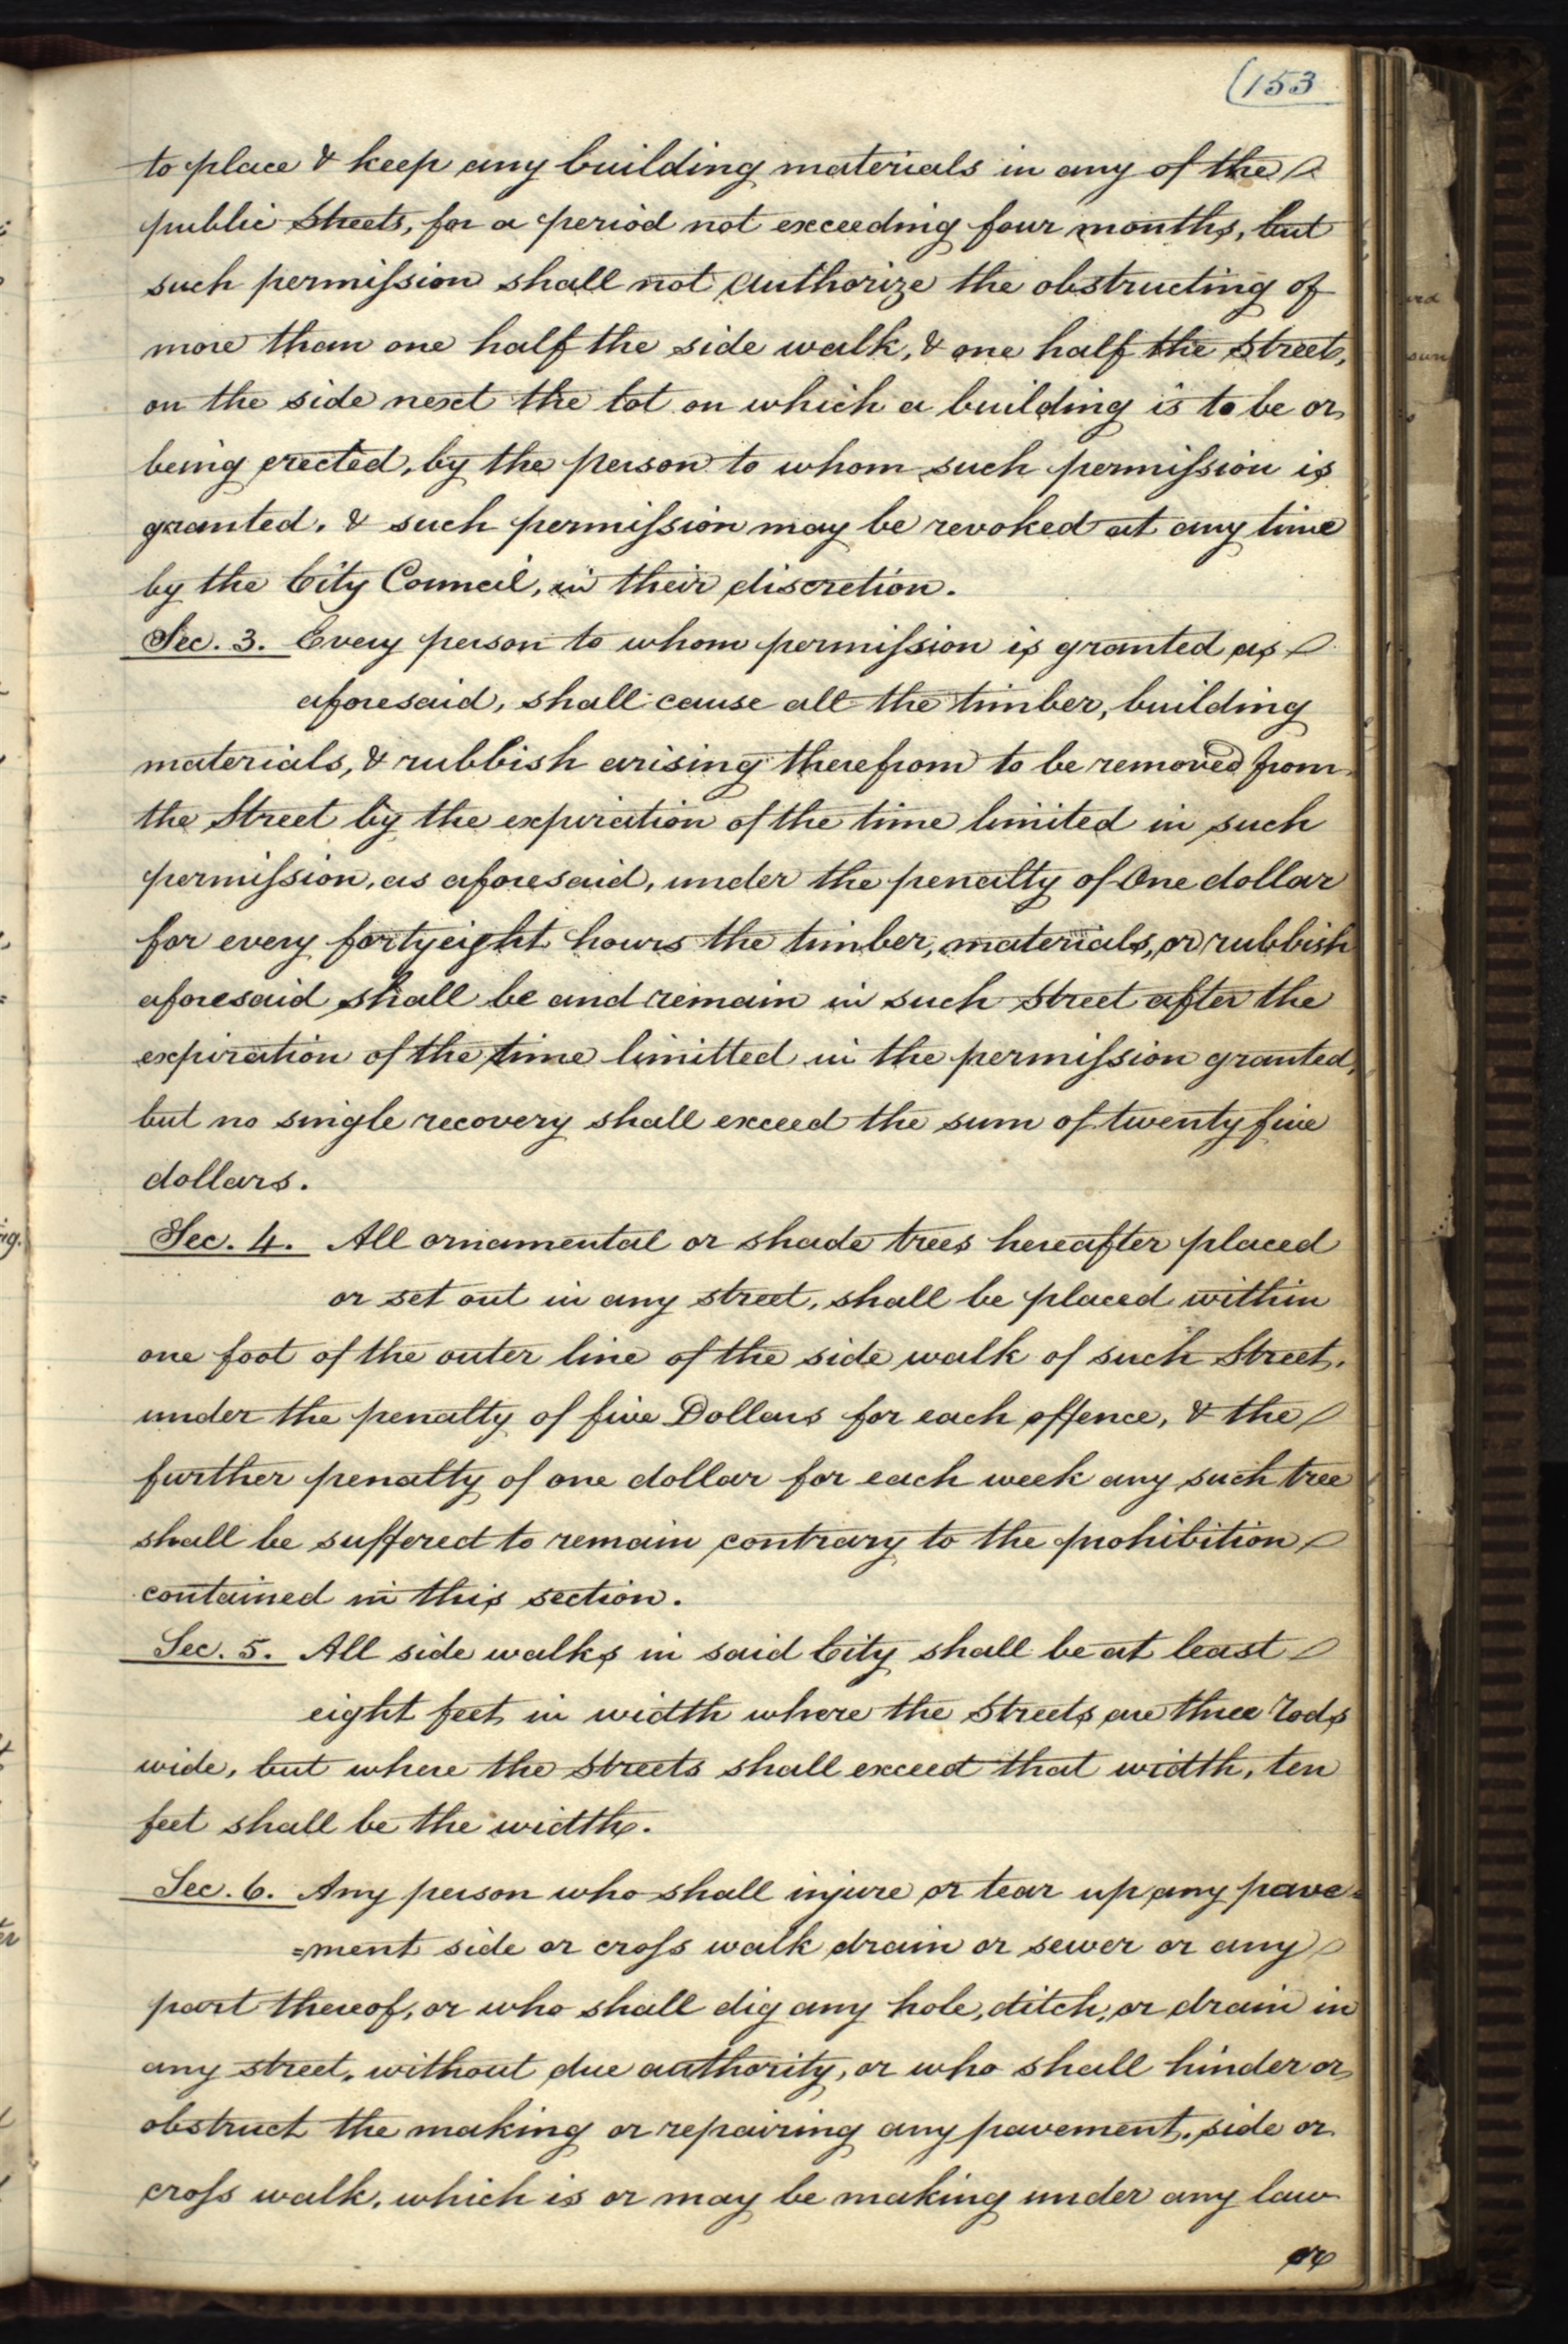 (153
to place & keep any building materials in any of the
public Streets, for a period not exceeding four months, but
such permiſsion shall not authorize the obstructing of
more than one half the side walk, & one half the Street,
on the side next the lot on which a building is to be or
being erected, by the person to whom such permiſsion is
granted. & such permiſsion may be revoked at any time
by the City Council, in their discretion.
Sec. 3. Every person to whom permiſsion is granted as
aforesaid, shall cause all the timber, building
materials, & rubbish arising therefrom to be removed from
the Street by the expiration of the time limited in such
permiſsion, as aforesaid, under the penalty of One dollar
for every fortyeight hours the timber, materials, or rubbish
aforesaid shall be and remain in such Street after the
expiration of the time limitted in the permiſsion granted,
but no single recovery shall exceed the sum of twenty five
dollars.
Sec. 4. All ornamental or shade trees hereafter placed
or set out in any street, shall be placed within
one foot of the outer line of the side walk of such Street.
under the penalty of five Dollars for each offence, & the
further penalty of one dollar for each week any such tree
shall be suffered to remain contrary to the prohibition
contained in this section.
Sec. 5. All side walks in said City shall be at least
eight feet in width where the Streets are three rods
wide, but where the Streets shall exceed that width, ten
feet shall be the width.
Sec. 6. Any person who shall injure or tear up any pave=
=ment side or croſs walk drain or sewer or any
part thereof, or who shall dig any hole, ditch, or drain in
any street, without due authority, or who shall hinder or
obstruct the making or repairing any pavement, side or
croſs walk, which is or may be making under any law
or